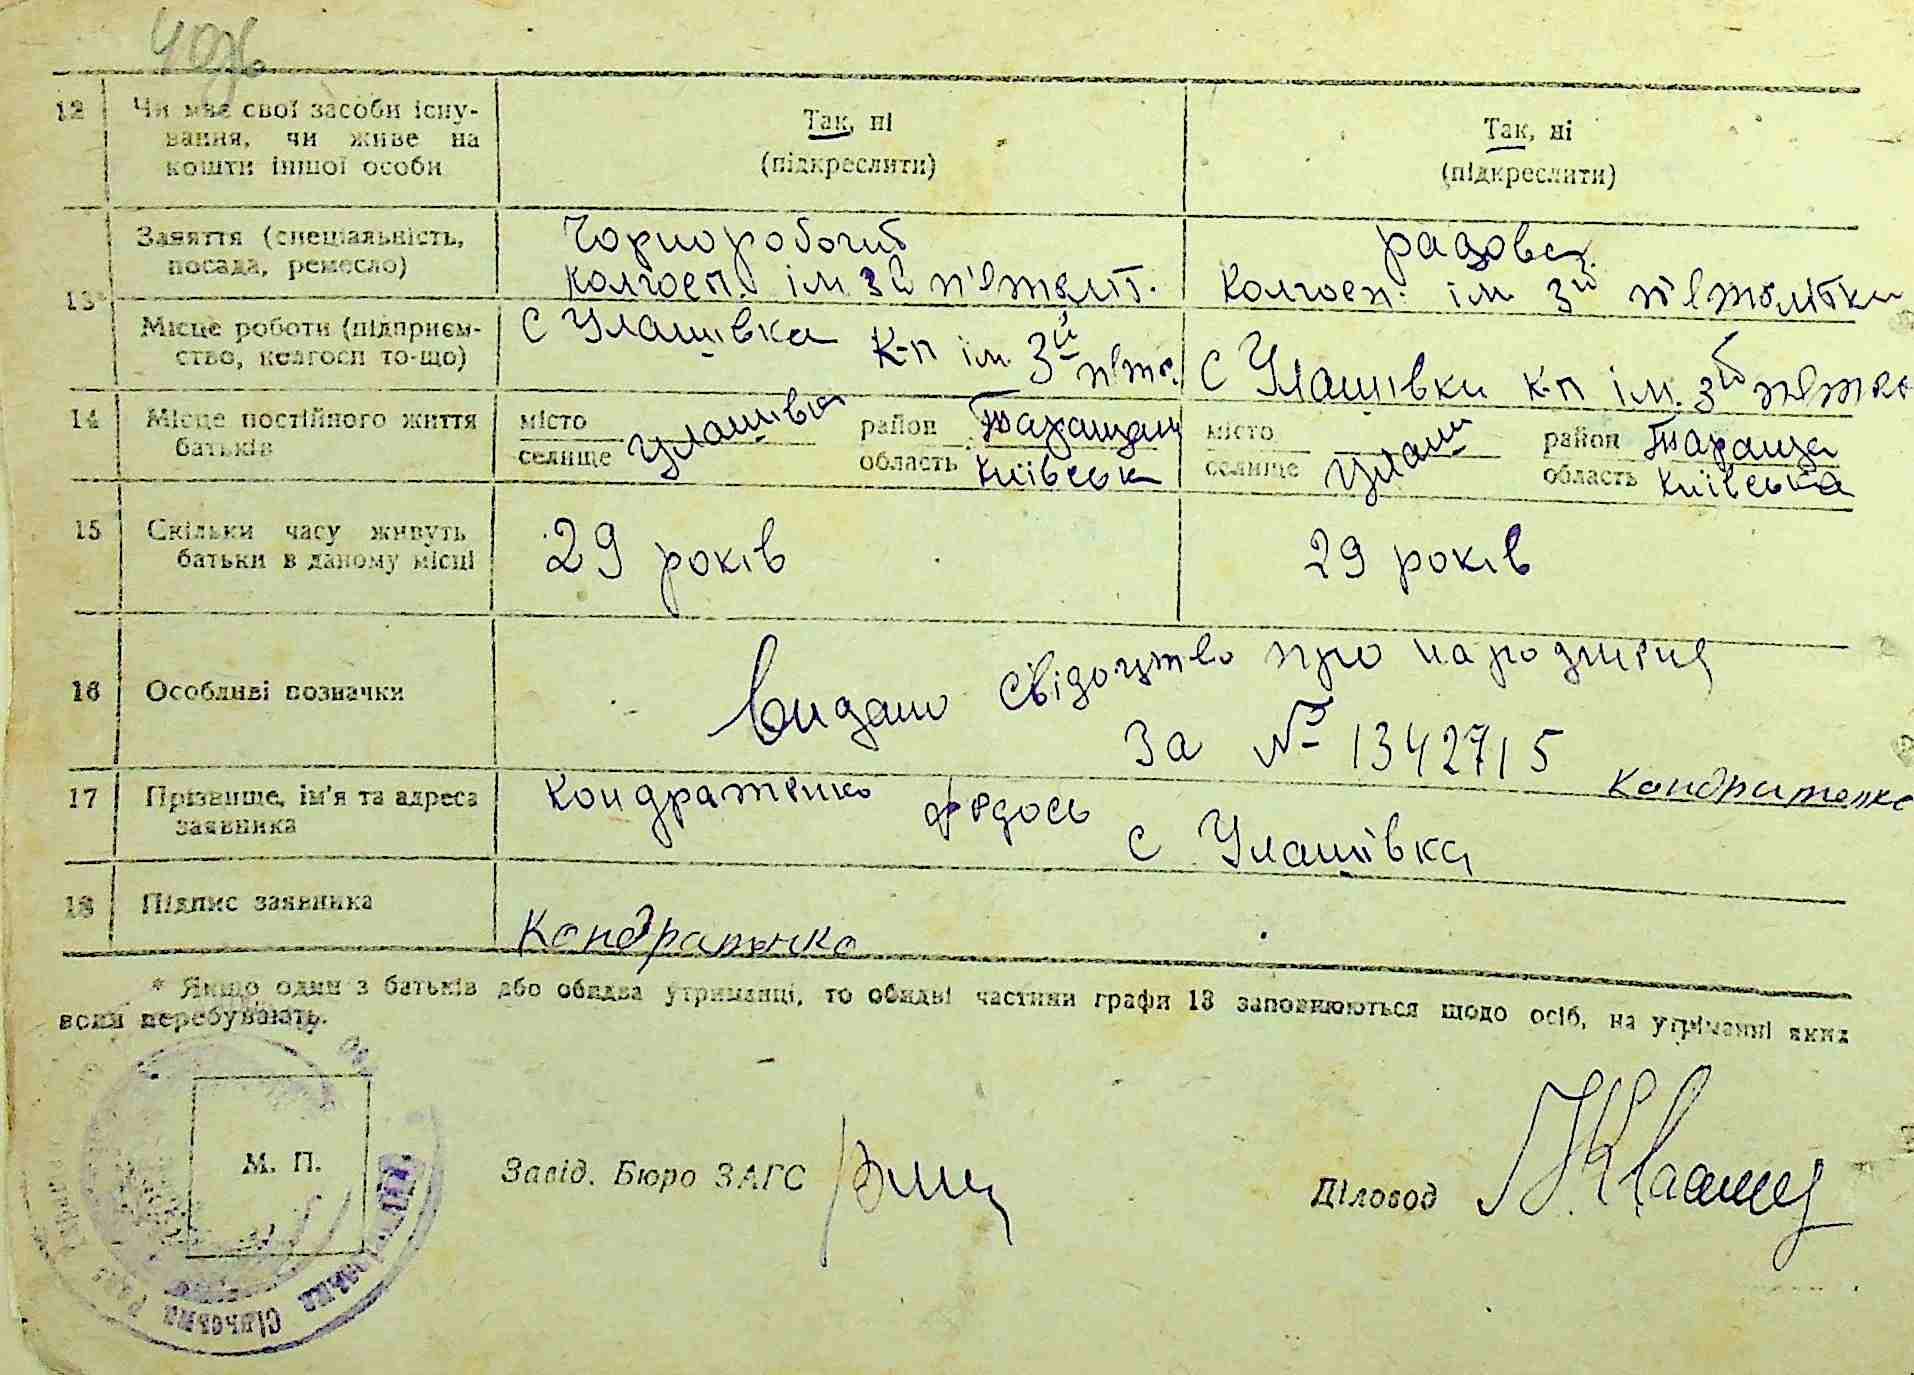 12 Чи має свої засоби існу- Так, ні Так, ні
вання, чи живе на (підкреслити) (підкреслити)
кошти іншої особи
13* Заняття (спеціальність, Чорноробочий радова
посада, ремесло) колгосп. ім 3й п'ятиліт. колгосп. ім. 3й п'ятилітки
Місце роботи (підприєм- с Улашівка к-п ім. 3й с Улашівки к-п ім. 3й
ство, колгосп то-що)
14 Місце постійного життя місто район місто район Тараща
батьків селище Улашівка область Київськ селище Улаш область Київська
15 Скільки часу живуть 29 років 29 років
батьки в даному місці
16 Особливі позначки Видано свідоцтво про народження
За № 1342715
17 Прізвище, ім'я та адреса Кондратенко Федось Кондратенко
заявника с Улашівка
18 Підпис заявника Кондратенко
* Якщо один з батьків або обидва утриманці, то обидві частини графи 13 заповнюються щодо осіб, на утриманні яких
вони перебувають.
М. П. Завід. Бюро ЗАГС Діловод
Сільська Рада